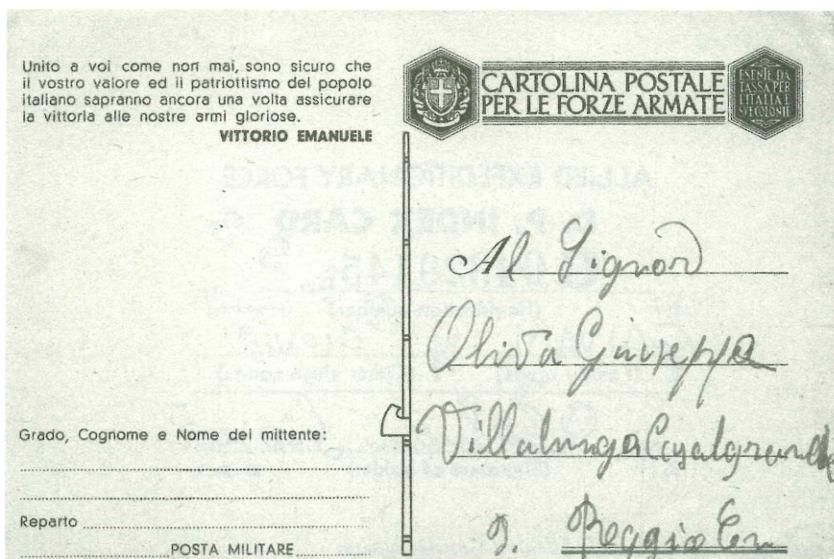 Unito a voi come non mai, sono sicuro che
il vostro valore ed il patriottismo del popolo
italiano sapranno ancora una volta assicurare
la vittoria alle nostre armi gloriose.
VITTORIO EMANUELE
CARTOLINA POSTALE
PER LE FORZE ARMATE
ESENTE DA
TASSA PER
L'ITALIA E
LE COLONIE
ALLIED EXPEDITIONARY FORCE
D. P. INDEX CARD
Al Signor
Oliva Giuseppe
Villalunga Casalgrande
Reggio Em
Grado, Cognome e Nome del mittente:
Reparto
POSTA MILITARE